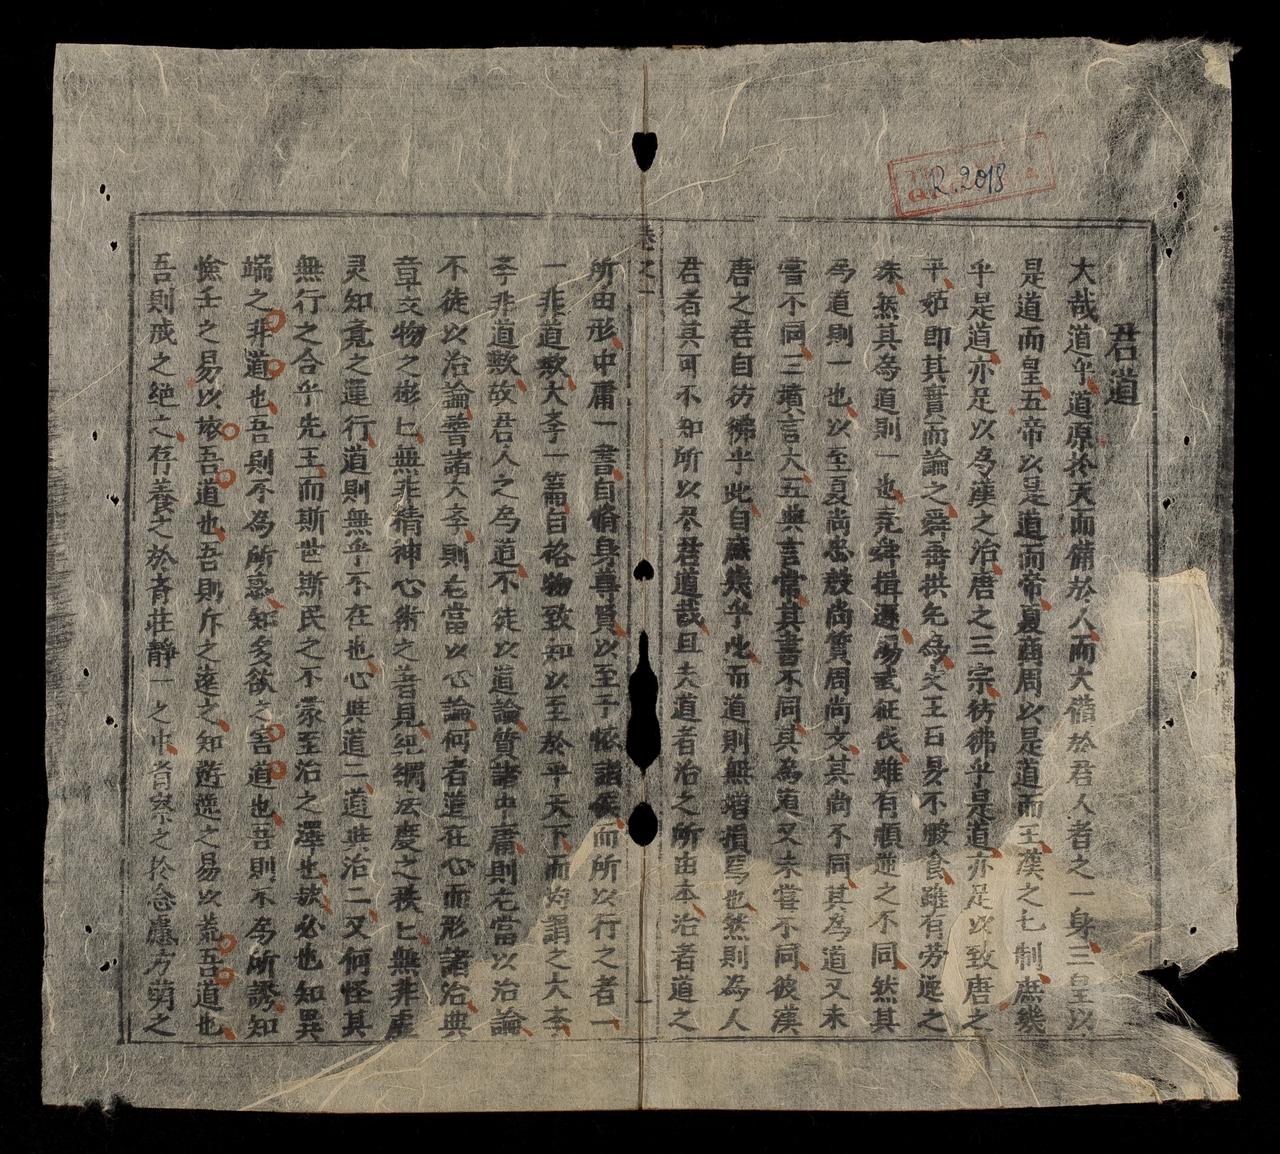 R.2018
君道
大哉道乎道原於天而備於人而大備於君人者之一身三皇以
是道而皇五帝以是道而帝夏商周以是道而王漢之七制庶幾
乎是道亦足以為漢之治唐之三宗彷彿乎是道亦足以致唐之
平姑即其實而論之舜垂拱先為文王日昃不暇食雖有劳逸之
殊然其為道則一也尭舜揖遜湯武征伐雖有順逆之不同然其
為道則一也以至夏尚忠殷尚質周尚文其尚不同其為道又未
嘗不同三墳言大五典言常其書不同其為道又未嘗不同彼漢
唐之君自彷彿乎此自庶幾乎此而道則無増損焉也然則為人
君者其可不知所以尽君道哉且夫道者治之所由本治者道之
卷之一
一
所由形中庸一書自脩身尊賢以至于懷諸侯而所以行之者一
一非道歟大李一篇自格物致知以至於平天下而均謂之大李
李非道歟故君人之為道不徒以道論質諸中庸則尤當以治論
不徒以治論誓諸大李則尤當以心論何者道在心而形諸治典
章文物之彬匕無非精神心術之著見纪綱法度之秩匕無非虚
灵知竟之運行道則無乎不在也心與道二道與治二又何怪其
無行之合乎先王而斯世斯民之不蒙至治之澤也故必也知異
端之非道也吾則不為所惑知多欲之害道也吾則不為所誘知
憸壬之易以 吾道也吾則斥之逺之知遊逸之易以荒吾道也
吾則戒之绝之存養之於斉莊静一之中省察之於念慮方萌之